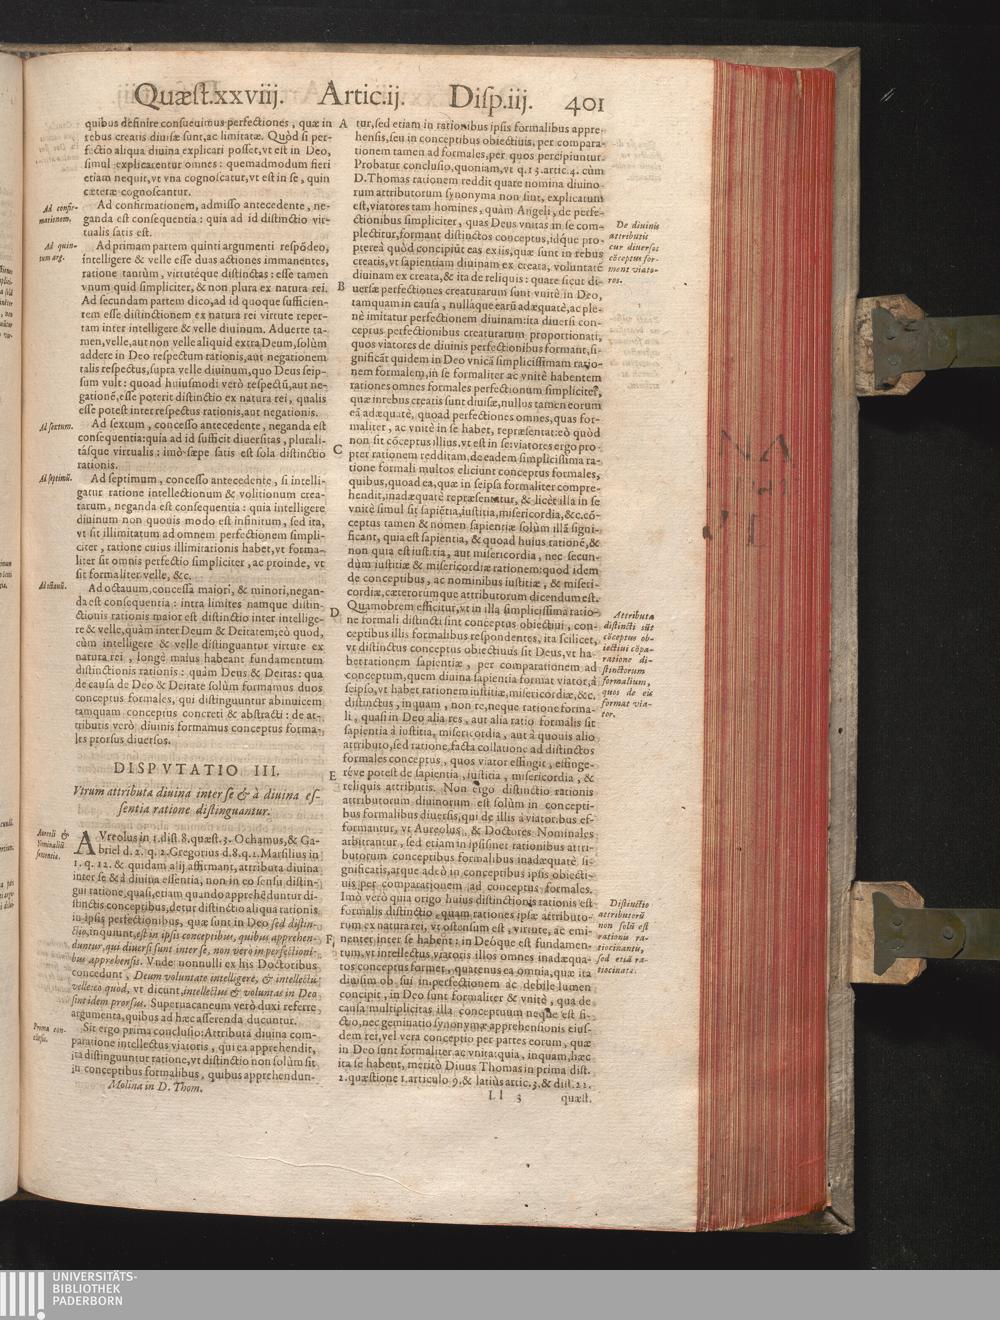 Quæst.xxviij. Artic.ij. Disp.iij. 401
quibus definire consueuimus perfectiones, quæ in
rebus creatis diuisæ sunt, ac limitatæ. Quòd si per-
fectio aliqua diuina explicari posset, vt est in Deo,
simul explicarentur omnes: quemadmodum fieri
etiam nequit, vt vna cognoscatur, vt est in se, quin
cæteræ cognoscantur.
Ad confir-
mationem.
Ad confirmationem, admisso antecedente, ne-
ganda est consequentia: quia ad id distinctio vir-
tualis satis est.
Ad quin-
tum arg.
Ad primam partem quinti argumenti respōdeo,
intelligere & velle esse duas actiones immanentes,
ratione tantùm, virtutéque distinctas: esse tamen
vnum quid simpliciter, & non plura ex natura rei.
Ad secundam partem dico, ad id quoque sufficien-
tem esse distinctionem ex natura rei virtute reper-
tam inter intelligere & velle diuinum. Aduerte ta-
men, velle, aut non velle aliquid extra Deum, solùm
addere in Deo respectum rationis, aut negationem
talis respectus, supra velle diuinum, quo Deus seip-
sum vult: quoad huiusmodi verò respectū, aut ne-
gationē, esse poterit distinctio ex natura rei, qualis
esse potest inter respectus rationis, aut negationis.
Ad sextum.
Ad sextum, concesso antecedente, neganda est
consequentia: quia ad id sufficit diuersitas, plurali-
tásque virtualis: imò sæpe satis est sola distinctio
rationis.
Ad septimū.
Ad septimum, concesso antecedente, si intelli-
gatur ratione intellectionum & volitionum crea-
tarum, neganda est consequentia: quia intelligere
diuinum non quouis modo est infinitum, sed ita,
vt sit illimitatum ad omnem perfectionem simpli-
citer, ratione cuius illimitationis habet, vt forma-
liter sit omnis perfectio simpliciter, ac proinde, vt
sit formaliter velle, &c.
Ad octauū.
Ad octauum, concessa maiori, & minori, negan-
da est consequentia: intra limites namque distin-
ctionis rationis maior est distinctio inter intellige-
re & velle, quàm inter Deum & Deitatem; eò quod,
cùm intelligere & velle distinguantur virtute ex
natura rei, longè maius habeant fundamentum
distinctionis rationis: quàm Deus & Deitas: qua
de causa de Deo & Deitate solùm formamus duos
conceptus formales, qui distinguuntur abinuicem
tamquam conceptus concreti & abstracti: de at-
tributis verò diuinis formamus conceptus forma-
les prorsus diuersos.
DISPVTATIO III.
Vtrum attributa diuina inter se & à diuina es-
sentia ratione distinguantur.
Aureoli &
Nominaliū
sententia.
AVreolus in 1. dist. 8. quæst. 3. Ochamus, & Ga-
briel d. 2. q. 2. Gregorius d. 8. q. 1. Marsilius in
1. q. 12. & quidam alij affirmant, attributa diuina
inter se & à diuina essentia, non in eo sensu distin-
gui ratione, quasi, etiam quando apprehēduntur di-
stinctis conceptibus, detur distinctio aliqua rationis
in ipsis perfectionibus, quæ sunt in Deo sed distin-
ctio, inquiunt, est in ipsis conceptibus, quibus apprehen-
duntur, qui diuersi sunt inter se, non verò in perfectioni-
bus apprehensis. Vnde nonnulli ex his Doctoribus
concedunt, Deum voluntate intelligere, & intellectu
velle: eo quod, vt dicunt, intellectus & voluntas in Deo
sint idem prorsus. Superuacaneum verò duxi referre
argumenta, quibus ad hæc asserenda ducuntur.
Prima con-
clusio.
Sit ergo prima conclusio: Attributa diuina com-
paratione intellectus viatoris, qui ea apprehendit,
ita distinguuntur ratione, vt distinctio non solùm sit
in conceptibus formalibus, quibus apprehendun-
Molina in D. Thom.
A
B
C
D
E
F
tur, sed etiam in rationibus ipsis formalibus appre-
hensis, seu in conceptibus obiectiuis, per compara-
tionem tamen ad formales, per quos percipiuntur.
Probatur conclusio, quoniam, vt q. 13. artic. 4. cùm
D. Thomas rationem reddit quare nomina diuino-
rum attributorum synonyma non sint, explicatum
est, viatores tam homines, quàm Angeli, de perfe-
ctionibus simpliciter, quas Deus vnitas in se com-
plectitur, formant distinctos conceptus, idque pro-
pterea quòd concipiūt eas ex iis, quæ sunt in rebus
creatis, vt sapientiam diuinam ex creata, voluntatē
diuinam ex creata, & ita de reliquis: quare sicut di-
uersæ perfectiones creaturarum sunt vnitè in Deo,
tamquam in causa, nullàque earū adæquatè, ac ple-
nè imitatur perfectionem diuinam: ita diuersi con-
ceptus perfectionibus creaturarum proportionati,
quos viatores de diuinis perfectionibus formant, si-
gnificāt quidem in Deo vnicā simplicissimam ratio-
nem formalem, in se formaliter ac vnitè habentem
rationes omnes formales perfectionum simpliciter,
quæ in rebus creatis sunt diuisæ, nullus tamen eorum
eā adæquatè, quoad perfectiones omnes, quas for-
maliter, ac vnitè in se habet, repræsentat: eò quòd
non sit cōceptus illius, vt est in se: viatores ergo pro-
pter rationem redditam, de eadem simplicissima ra-
tione formali multos eliciunt conceptus formales,
quibus, quoad ea, quæ in seipsa formaliter compre-
hendit, inadæquatè repræsentatur, & licèt illa in se
vnitè simul sit sapiētia, iustitia, misericordia, &c. cō-
ceptus tamen & nomen sapientiæ solùm illā signi-
ficant, quia est sapientia, & quoad huius rationē, &
non quia est iustitia, aut misericordia, nec secun-
dùm iustitiæ & misericordiæ rationem: quod idem
de conceptibus, ac nominibus iustitiæ, & miseri-
cordiæ, cæterorumque attributorum dicendum est.
Quamobrem efficitur, vt in illa simplicissima ratio-
ne formali distincti sint conceptus obiectiui, con-
ceptibus illis formalibus respondentes, ita scilicet,
vt distinctus conceptus obiectiuus sit Deus, vt ha-
bet rationem sapientiæ, per comparationem ad
conceptum, quem diuina sapientia format viator, à
seipso, vt habet rationem iustitiæ, misericordiæ, &c.
distinctus, inquam, non re, neque ratione forma-
li, quasi in Deo alia res, aut alia ratio formalis sit
sapientia à iustitia, misericordia, aut à quouis alio
attributo, sed ratione, facta collatione ad distinctos
formales conceptus, quos viator effingit, effinge-
réve potest de sapientia, iustitia, misericordia, &
reliquis attributis. Non ergo distinctio rationis
attributorum diuinorum est solùm in concepti-
bus formalibus diuersis, qui de illis à viatoribus ef-
formantur, vt Aureolus, & Doctores Nominales
arbitrantur, sed etiam in ipsismet rationibus attri-
butorum conceptibus formalibus inadæquatè si-
gnificatis, atque adeò in conceptibus ipsis obiecti-
uis per comparationem ad conceptus formales.
Imò verò quia origo huius distinctionis rationis est
formalis distinctio, quam rationes ipsæ attributo-
rum ex natura rei, vt ostensum est, virtute, ac emi-
nenter, inter se habent: in Deóque est fundamen-
tum, vt intellectus viatoris illos omnes inadæqua-
tos conceptus formet, quatenus ea omnia, quæ ita
diuisim ob sui imperfectionem ac debile lumen
concipit, in Deo sunt formaliter & vnitè, qua de
causa multiplicitas illa conceptuum neque est fi-
ctio, nec geminatio synonymæ apprehensionis eius-
dem rei, vel vera conceptio per partes eorum, quæ
in Deo sunt formaliter ac vnita: quia, inquam, hæc
ita se habent, meritò Diuus Thomas in prima dist.
2. quæstione 1. articulo 9. & latiùs artic. 3. & dist. 22.
Ll 3 quæst.
De diuinis
attributis
cur diuersos
cōceptus for-
ment viato-
res.
Attributa
distincti sūt
cōceptus ob-
iectiui cōpa-
ratione di-
stinctorum
formalium,
quos de eis
format via-
tor.
Distinctio
attributorū
non solū est
rationis ra-
tiocinantis,
sed etiā ra-
tiocinatæ.
UNIVERSITÄTS-
BIBLIOTHEK
PADERBORN